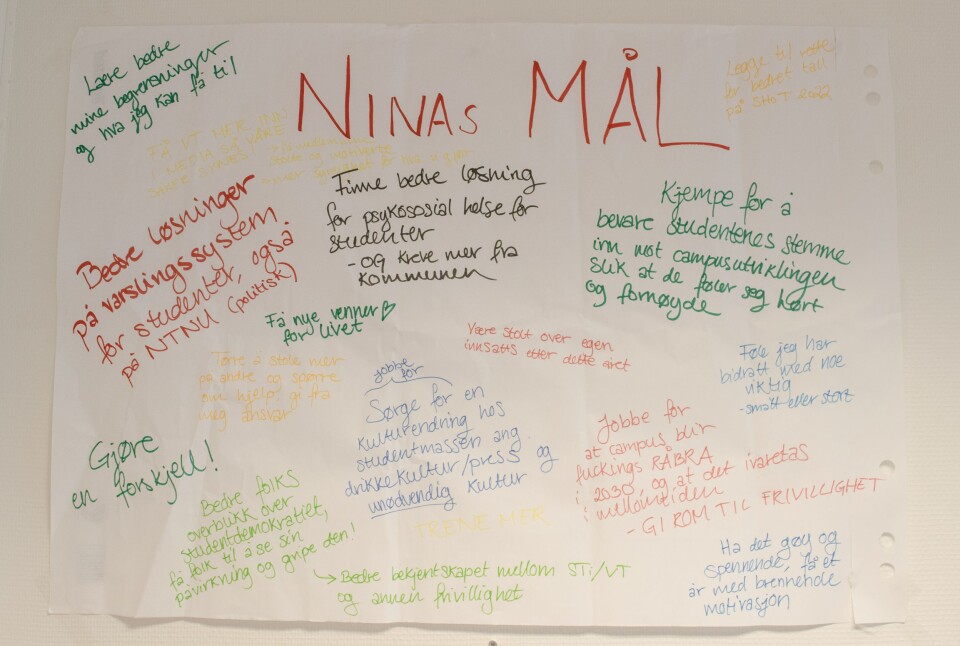 NINAS MÅL
Lære bedre
mine begrensninger
og hva jeg kan få til
Legge til rette
for bedret tall
på SHoT 2022
FÅ VT MER INN
I MEDIA
Finne bedre løsning
for psykososial helse for
studenter
- OG kreve mer fra
kommunen
Kjempe for å
bevare studentenes stemme
inn mot campusutviklingen
slik at de føler seg hørt
og fornøyde
Bedre løsninger
på varslingssystem
for studenter, også
på NTNU (politisk)
Få nye venner
for livet
Være stolt over egen
innsatts etter dette året
Føle jeg har
bidratt med noe
viktig
- smått eller stort
Tørre å stole mer
på andre og spørre
om hjelp, gi fra
meg ansvar
Jobbe
for
Sørge for en
kulturendring hos
studentmassen ang.
drikkekultur/press og
unødvendig kultur
Jobbe for
at campus blir
fuckings RÅBRA
i 2030, og at det ivaretas
i mellomtiden
- GI ROM TIL FRIVILLIGHET
Gjøre
en forskjell!
Bedre folks
overblikk over
studentdemokratiet,
få folk til å se sin
påvirkning og gripe den!
→ Bedre bekjentskapet mellom STi/VT
og annen frivillighet
TRENE MER
Ha det gøy og
spennende, få et
år med brennende
motivasjon